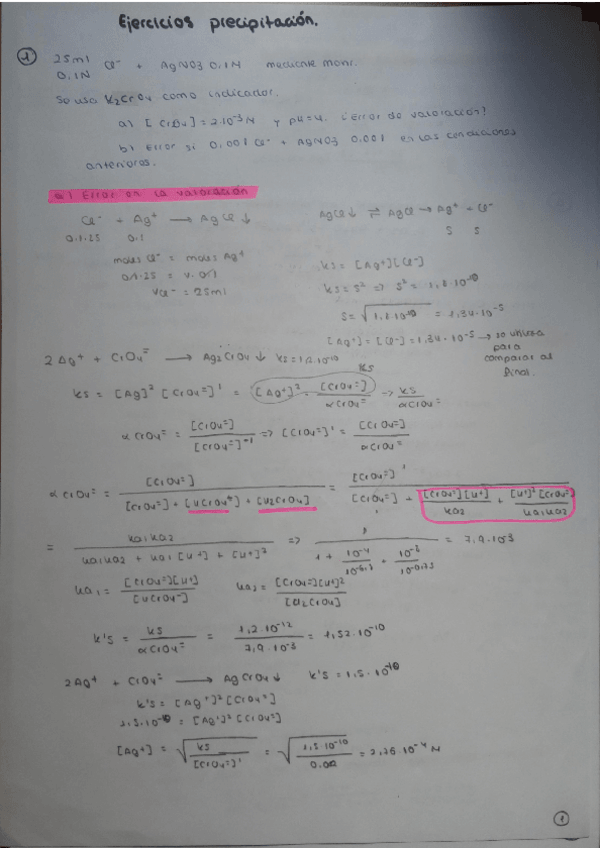 Ejercicios precipitación.
① 25ml 0,1N Cl⁻ + AgNO3 0,1N mediante mohr.
Se usa K2CrO4 como indicador.
a) [CrO4] = 2·10⁻³N y pH=4. ¿Error de valoración?
b) Error si 0,001 Cl⁻ + AgNO3 0,001 en las condiciones
anteriores.
a) Error en la valoración
Cl⁻ + Ag⁺ → AgCl ↓
0,1·25 0,1
moles Cl⁻ = moles Ag⁺
0,1·25 = V·0,1
VCl⁻ = 25ml
AgCl↓ ⇌ AgCl → Ag⁺ + Cl⁻
S S
ks = [Ag⁺][Cl⁻]
ks = s² => s² = 1,8·10⁻¹⁰
S = √1,8·10⁻¹⁰ = 1,34·10⁻⁵
[Ag⁺] = [Cl⁻] = 1,34·10⁻⁵ → se utiliza
para
comparar al
final.
2Ag⁺ + CrO4⁼ → Ag2CrO4 ↓
ks = [Ag]² [CrO4⁼]' = [Ag⁺]² · [CrO4⁼] / αCrO4⁼ → ks / αCrO4⁼
ks
αCrO4⁼ = [CrO4⁼] / [CrO4⁼]' => [CrO4⁼]' = [CrO4⁼] / αCrO4⁼
αCrO4⁼ = [CrO4⁼] / [CrO4⁼] + [HCrO4⁻] + [H2CrO4] = [CrO4⁼]' / [CrO4⁼] + [CrO4⁼][H⁺] / ka2 + [H⁺]²[CrO4⁼] / ka1ka2
= ka1ka2 / ka1ka2 + ka1[H⁺] + [H⁺]² => 1 / 1 + 10⁻⁴ / 10⁻⁶·⁵ + 10⁻⁸ / = 7,9·10⁻³
ka1 = [CrO4⁼][H⁺] / [HCrO4⁻] ka2 = [CrO4⁼][H⁺]² / [H2CrO4]
k's = ks / αCrO4⁼ = 1,2·10⁻¹² / 7,9·10⁻³ = 1,52·10⁻¹⁰
2Ag⁺ + CrO4⁼ → AgCrO4 ↓ k's = 1,5·10⁻¹⁰
k's = [Ag⁺]² [CrO4⁼]
1,5·10⁻¹⁰ = [Ag⁺]² [CrO4⁼]
[Ag⁺] = √ks / [CrO4⁼]' = √1,5·10⁻¹⁰ / 0,002 = 2,76·10⁻⁴ N
①